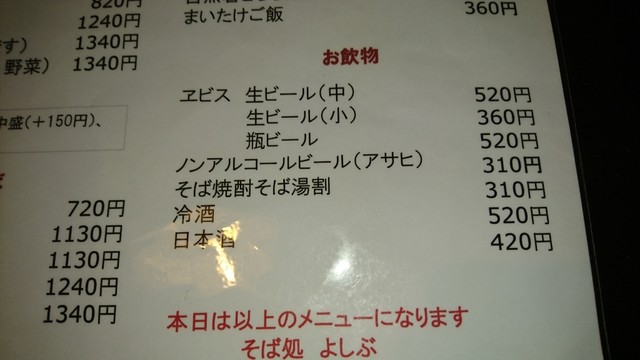 820円
1240円
す) 1340円
野菜) 1340円
中盛(+150円)、
720円
1130円
1130円
1240円
1340円
まいたけご飯 360円
お飲物
ヱビス 生ビール(中) 520円
生ビール(小) 360円
瓶ビール 520円
ノンアルコールビール(アサヒ) 310円
そば焼酎そば湯割 310円
冷酒 520円
日本酒 420円
本日は以上のメニューになります
そば処 よしぶ